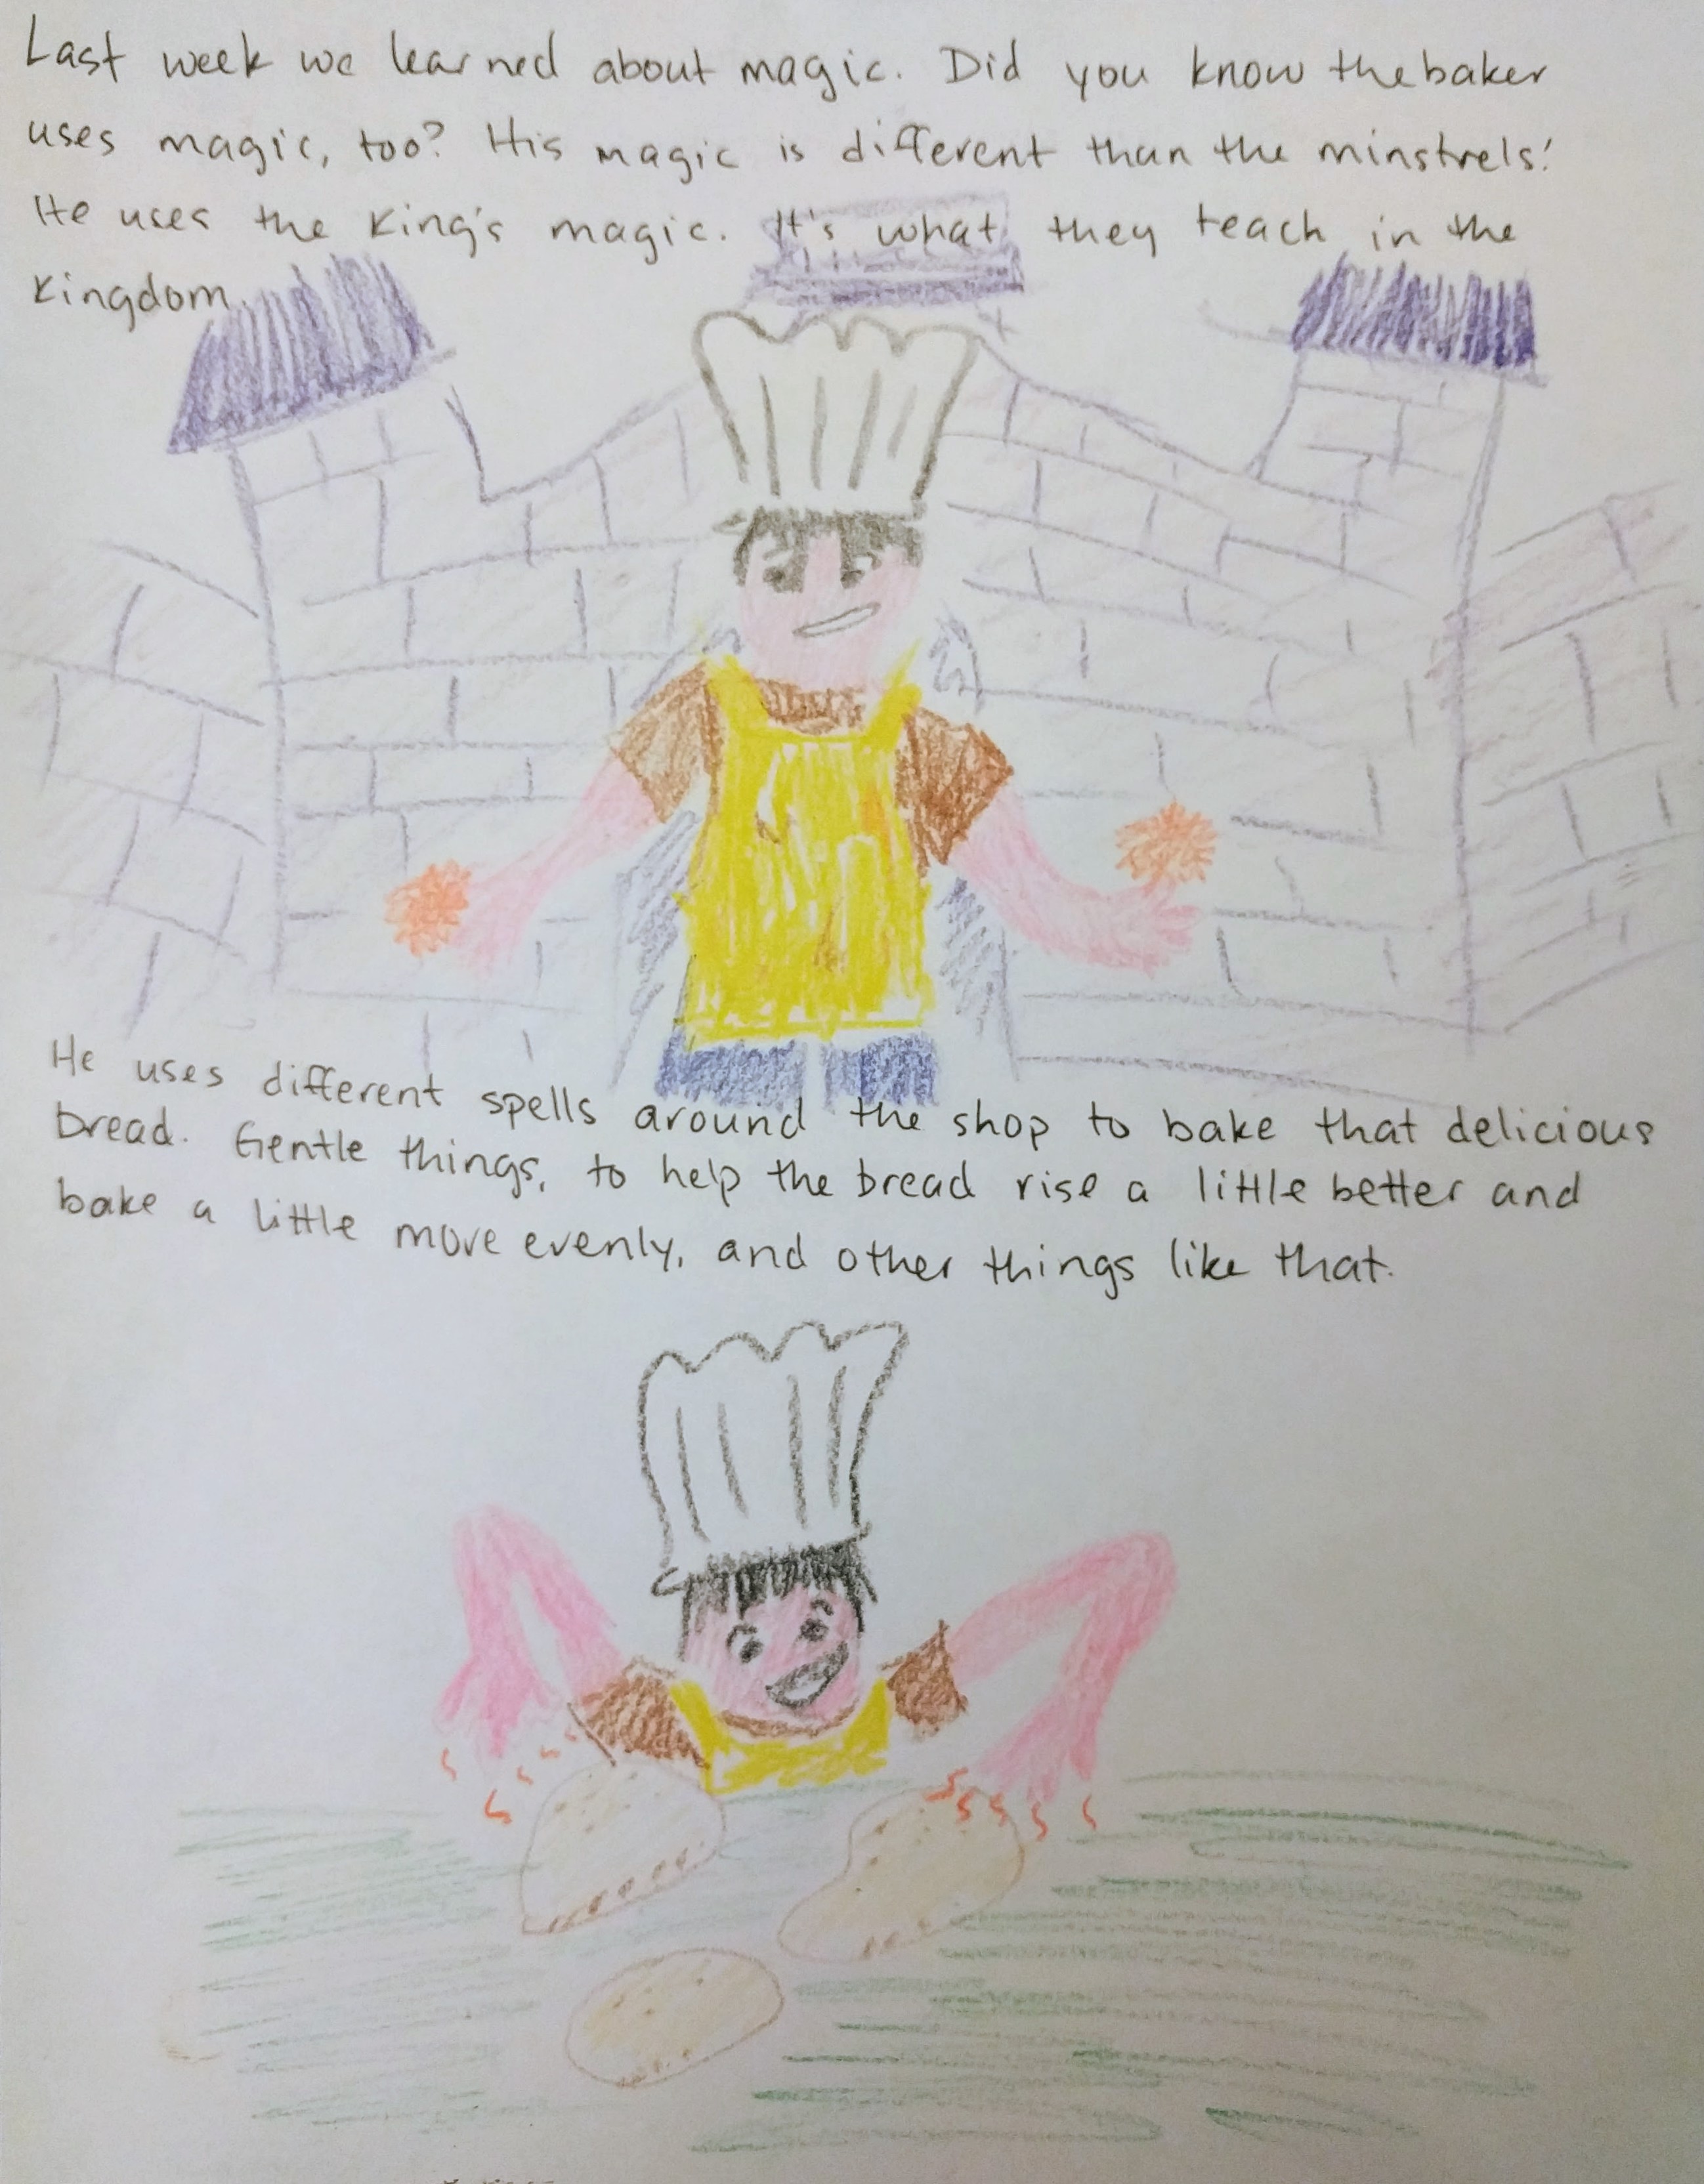 Last week we learned about magic. Did you know the baker
uses magic, too? His magic is different than the minstrels'.
He uses the King's magic. It's what they teach in the
Kingdom.
He uses different spells around the shop to bake that delicious
bread. Gentle things, to help the bread rise a little better and
bake a little more evenly, and other things like that.